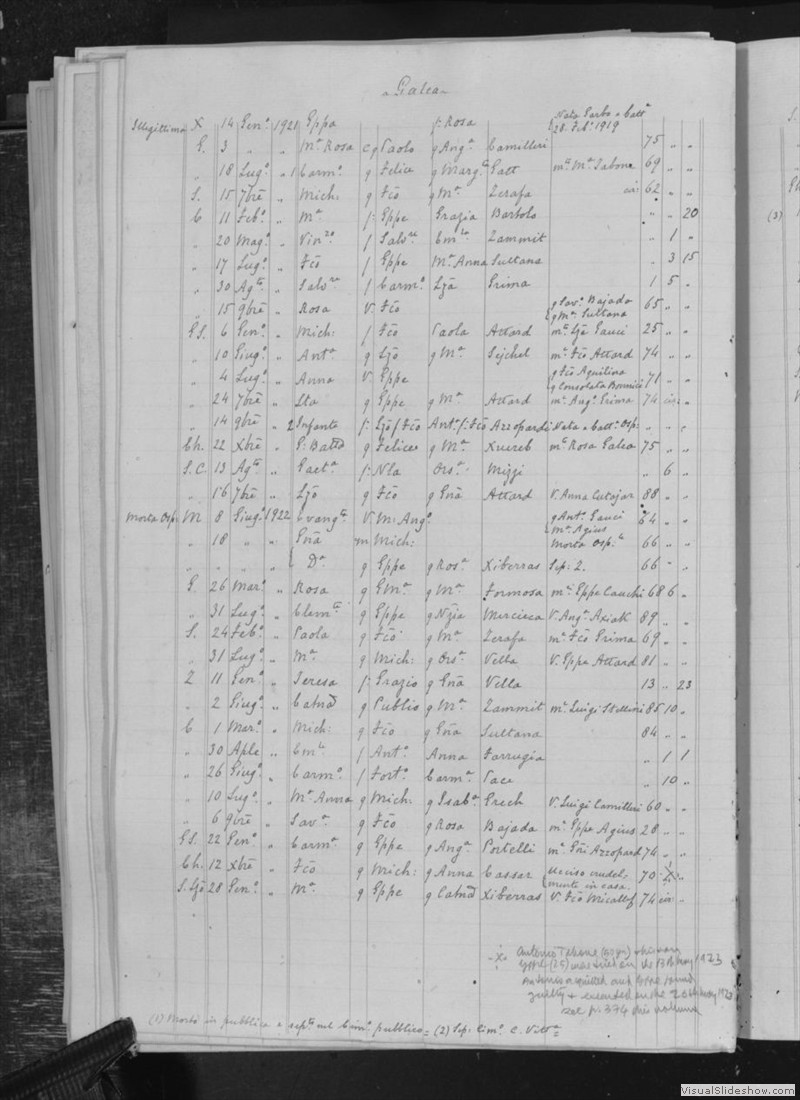 Galea
Illegittima X 14 Genº. 1921 Gppa f: Rosa Nata Parto e Battª 28. Febº. 1919
G. 3 " " Mª. Rosa cg Paolo g Angª. Camilleri 75 " "
" 18 Lugº. " Carmº. g Felice g Margtª Gatt mª. Mª. Tabone 69 " "
S. 15 7bre " Mich: g Fco g Mª. Zerafa 62 " "
C 11 Febº. " Mª f: Gppe Grazia Bartolo " " 20
" 20 Magº. " Vinzº f Salvre Cmla Zammit " 1 "
" 17 Lugº. " Fco f Gppe Mª. Anna Sultana " 3 15
" 30 Agto " Salvre f Carmº. Lza Grima 1 5 "
" 15 9bre " Rosa V. Fco g Savº. Bajada g Mª. Sultana 65 " "
GS. 6 Genº. " Mich: f Fco Paola Attard mº Lza Gauci 25 " "
" 10 Giugº. " Antª g Lzo g Mª. Sejchel mª. Fco Attard 74 " "
" 4 Lugº. " Anna V. Gppe g Fco Aquilina g Consolata Bonnici 71 " "
" 24 7bre " g Gppe g Mª. Attard mª. Angº. Grima 74 "
" 14 9bre " 2 Infante f: Lzo f: Fco Antª. f: Fco Azzopardi Nata e battª Osp:
Ch. 22 Xbre " G: Batta g Felice g Mª. Xuereb mº Rosa Galea 75 " "
S.C 13 Agto " Gaetª f: Nla Orsª. Mizzi " 6 "
" 16 7bre " Lzo g Fco g Gnã Attard V. Anna Cutajar 88 " "
Morta Osp: M 8 Giugº. 1922 Evangta V. M: Angº. g Antº. Gauci g Mª. Agius 64 " "
" 18 " " Gnã m Mich: Morta Osp:le 66 " "
" " " " Dª g Gppe g Rosª. Xiberras Sep: 2. 66 " "
G. 26 Marº. " Rosa g GMª. g Mª Formosa mª. Gppe Cauchi 68 6 "
" 31 Lugº. " Clemta g Gppe g Nzia Mercieca V. Angº. Axiak 89 " "
S. 24 Febº. " Paola g Fco g Mª Zerafa mª. Fco Grima 69 " "
" 31 Lugº. " Mª g Mich: g Orsª. Vella V. Gppe Attard 81 " "
Z 11 Genº. " Teresa f: Grazio g Gnã Vella 13 " 23
" 2 Giugº. " Catna g Publio g Mª. Zammit mª. Luigi Stellini 85 10 "
C 1 Marº. " Mich: g Fco g Gnã Sultana 84 " "
" 30 Aple " Cmle f Antº. Anna Farrugia " 1 1
" 26 Giugº. " Carmº. f Fortº. Carmª. Pace " 10 "
" 10 Lugº. " Mª. Anna g Mich: g Isabª. Grech V. Luigi Camilleri 60 " "
" 6 9bre " Savª. g Fco g Rosa Bajada mª. Gppe Agius 28 " "
GS. 22 Genº. " Carmª. g Gppe g Angª. Portelli mª. Gñi Azzopard 74 " "
Ch. 12 Xbre " Fco g Mich: g Anna Cassar Ucciso crudelmente in casa. 70 X "
S.Lzo 28 Genº. " Mª. g Gppe g Catna Xiberras V. Fco Micallef 74
X Antonio Tabone (60 yr)
Gppe (25) was tried on the 13th May 1923
Antonio acquitted and Gppe found
guilty + executed on the 26th May 1923
see p. 374 this volume
(1) Morto in pubblico e septo nel Cimº. pubblico = (2) Sep: Cimº. C. Vittª =
(3)
VisualSlideshow.com